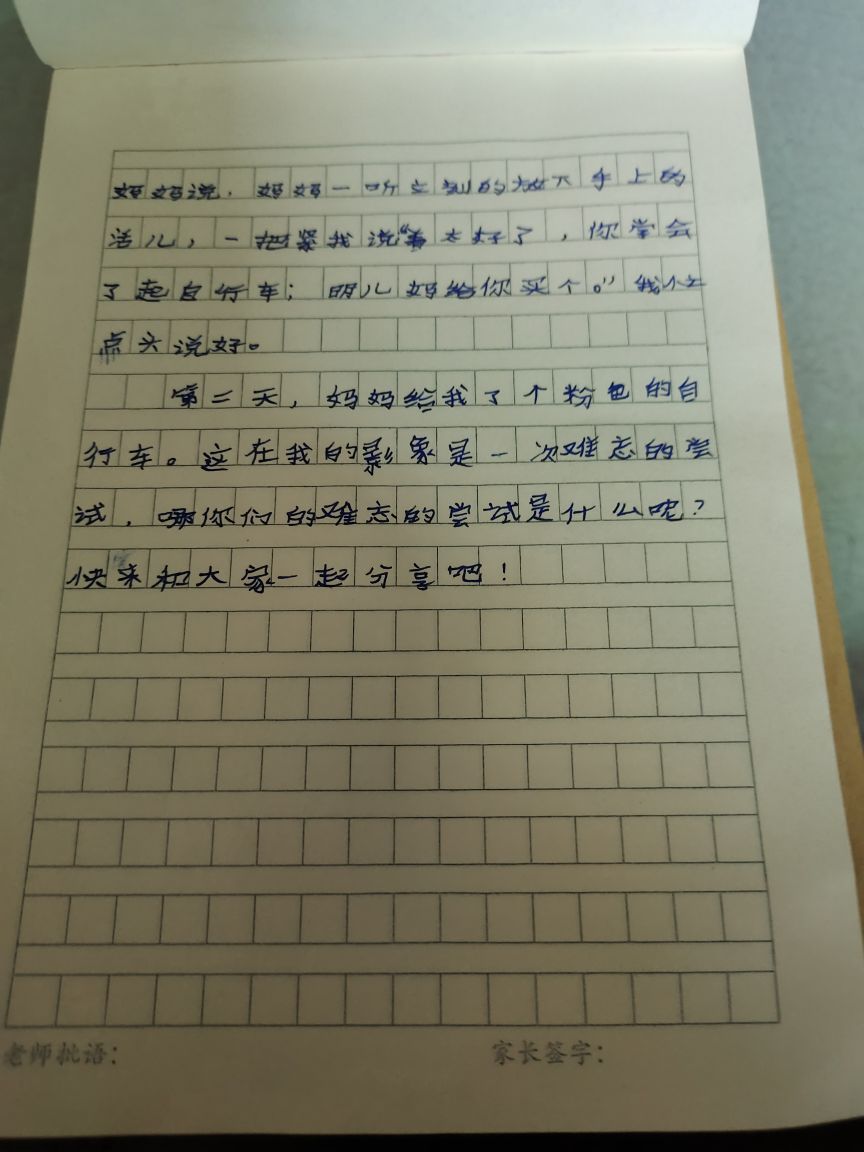 妈妈说，妈妈一听立刻的放下手上的
活儿，一把紧我说“太好了，你学会
了起自行车；明儿妈给你买个。”我
点头说好。
第二天，妈妈给我了个粉色的自
行车。这在我的影象是一次难忘的尝
试，哪你们的难忘的尝试是什么呢？
快来和大家一起分享吧！
老师批语：
家长签字：